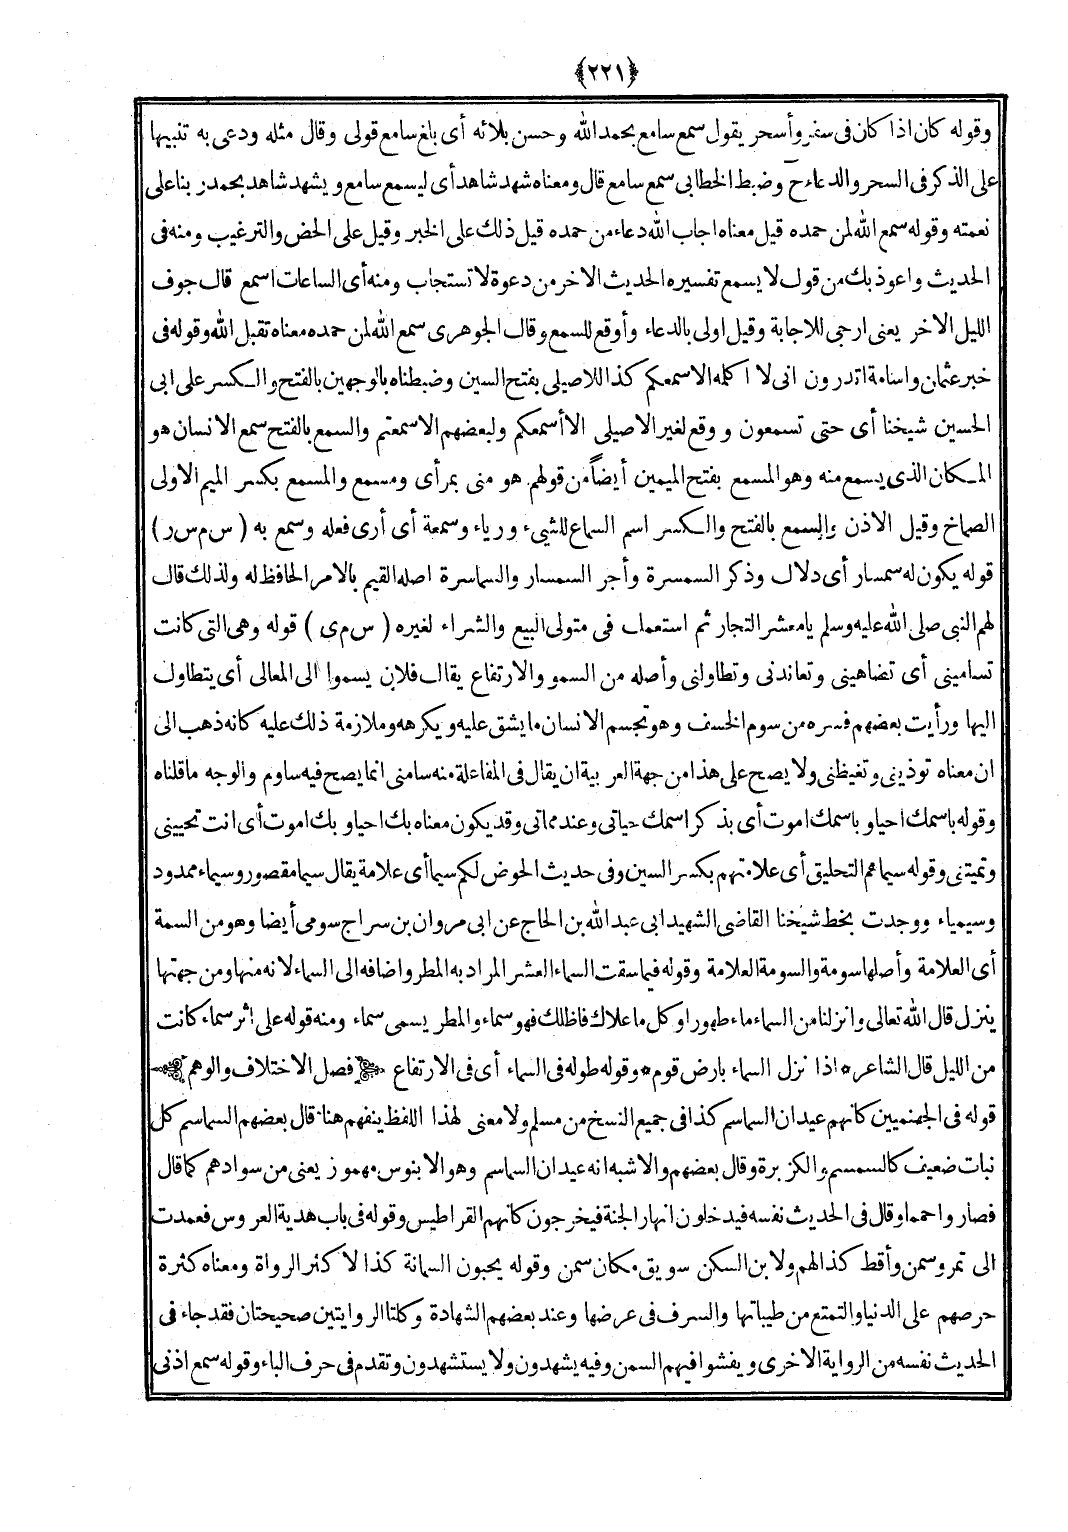 ﴿٢٢١﴾
وقوله كان اذا كان فى سفر وأسحر يقول سمع سامع بحمد الله وحسن بلائه أى بلغ سامع قولى وقال مثله ودعى به تنبيها
على الذكر فى السحر والدعاء ح وضبط الخطابى سمع سامع قال ومعناه شهد شاهد أى ليسمع سامع ويشهد شاهد بحمد ربنا على
نعمته وقوله سمع الله لمن حمده قيل معناه اجاب الله دعاء من حمده قيل ذلك على الخبر وقيل على الحض والترغيب ومنه فى
الحديث واعوذ بك من قول لا يسمع تفسيره الحديث الاخر من دعوة لا تستجاب ومنه أى الساعات اسمع قال جوف
الليل الاخر يعنى ارجى للاجابة وقيل اولى بالدعاء وأوقع للسمع وقال الجوهرى سمع الله لمن حمده معناه تقبل الله وقوله فى
خبر عثمان واسامة اتدرون انى لا اكلمه الاسمعكم كذا للاصيلى بفتح السين وضبطناه بالوجهين بالفتح والكسر على ابى
الحسين شيخنا أى حتى تسمعون ووقع لغير الاصيلى الا أسمعكم ولبعضهم الاسمعتم والسمع بالفتح سمع الانسان هو
المكان الذى يسمع منه وهو المسمع بفتح الميمين أيضاً من قولهم هو منى بمرأى ومسمع والمسمع بكسر الميم الاولى
الصماخ وقيل الاذن والسمع بالفتح والكسر اسم السماع للشىء ورياء وسمعة أى أرى فعله وسمع به (س م س ر)
قوله يكون له سمسار أى دلال وذكر السمسرة وأجر السمسار والسماسرة اصله القيم بالامر الحافظ له ولذلك قال
لهم النبى صلى الله عليه وسلم يا معشر التجار ثم استعمل فى متولى البيع والشراء لغيره (س م ى) قوله وهى التى كانت
تسامينى أى تضاهينى وتعاندنى وتطاولنى وأصله من السمو والارتفاع يقال فلان يسموا الى المعالى أى يتطاول
اليها ورأيت بعضهم فسره من سوم الخسف وهو تجسم الانسان ما يشق عليه ويكرهه وملازمة ذلك عليه كانه ذهب الى
ان معناه توذينى وتغيظنى ولا يصح على هذا من جهة العربية ان يقال فى المفاعلة منه سامنى انما يصح فيه ساوم والوجه ما قلناه
وقوله باسمك احيا وباسمك اموت أى بذكر اسمك حياتى وعند مماتى وقد يكون معناه بك احيا وبك اموت أى انت تحيينى
وتميتنى وقوله سيماهم التحليق أى علامتهم بكسر السين وفى حديث الحوض لكم سيما أى علامة يقال سيما مقصور وسيماء ممدود
وسيمياء ووجدت بخط شيخنا القاضى الشهيد ابى عبد الله بن الحاج عن ابى مروان بن سراج سومى أيضا وهو من السمة
أى العلامة وأصلها سومة والسومة العلامة وقوله فيما سقت السماء العشر المراد به المطر واضافه الى السماء لانه منها ومن جهتها
ينزل قال الله تعالى وانزلنا من السماء ماء طهورا وكل ما علاك فاظلك فهو سماء والمطر يسمى سماء ومنه قوله على اثر سماء كانت
من الليل قال الشاعر * اذا نزل السماء بارض قوم * وقوله طوله فى السماء أى فى الارتفاع فصل الاختلاف والوهم
قوله فى الجهنميين كانهم عيدان السماسم كذا فى جميع النسخ من مسلم ولا معنى لهذا اللفظ ينفهم هنا قال بعضهم السماسم كل
نبات ضعيف كالسمسم والكزبرة وقال بعضهم والاشبه انه عيدان الساسم وهو الابنوس مهموز يعنى من سوادهم كما قال
فصار واحمما وقال فى الحديث نفسه فيدخلون انهار الجنة فيخرجون كانهم القراطيس وقوله فى باب هدية العروس فعمدت
الى تمر وسمن وأقط كذا لهم ولابن السكن سويق مكان سمن وقوله يحبون السمانة كذا لاكثر الرواة ومعناه كثرة
حرصهم على الدنيا والتمتع من طيباتها والسرف فى عرضها وعند بعضهم الشهادة وكلتا الروايتين صحيحتان فقد جاء فى
الحديث نفسه من الرواية الاخرى ويفشوا فيهم السمن وفيه يشهدون ولا يستشهدون وتقدم فى حرف الباء وقوله سمع اذنى